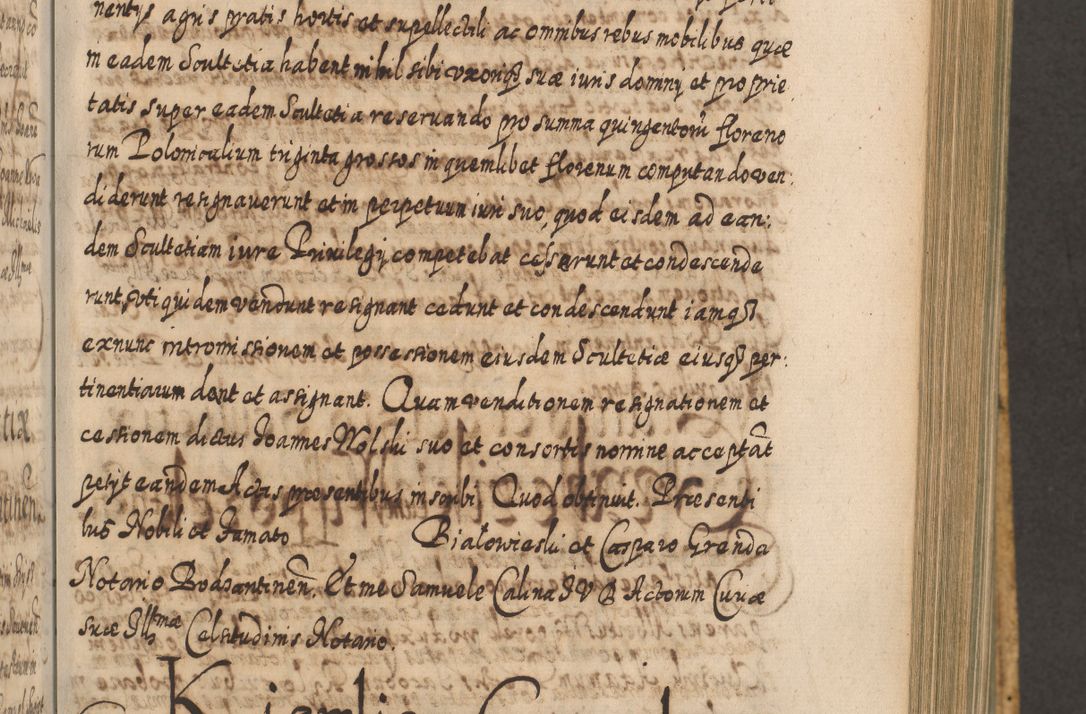 nentijs agris pratis hortis et supellectili ac omnibus rebus mobilibus quæ
in eadem Scultetia habent nihil sibi vxoriq3 suæ iuris dominij et proprie
tatis super eadem Scultetia reseruando pro summa quingentorũ floreno
rum Polonicalium triginta grossos in quemlibet florenum computando ven:
diderunt resignauerunt et in perpetuum iuri suo, quod eisdem ad ean:
dem Scultetiam iure Priuilegij competebat cesserunt et condescende
runt, vti quidem vendunt resignant cedunt et condescendunt iamq3
exnunc intromissionem et possessionem eiusdem Scultetiæ eiusq3 per:
tinentiarum dant et assignant. Quam venditionem resignationem et
cessionem dictus Joannes Wolski suo et consortis nomine acceptãt
petijt eandem Actis præsentibus inscribi Quod obtinuit. Præsenti
bus Nobili et Famato Białowieski et Casparo Grenda
Notario Bodzantinen̄. Et me Samuele Calina J V D Actorum Curiæ
suæ Illmæ Celsitudinis Notario.